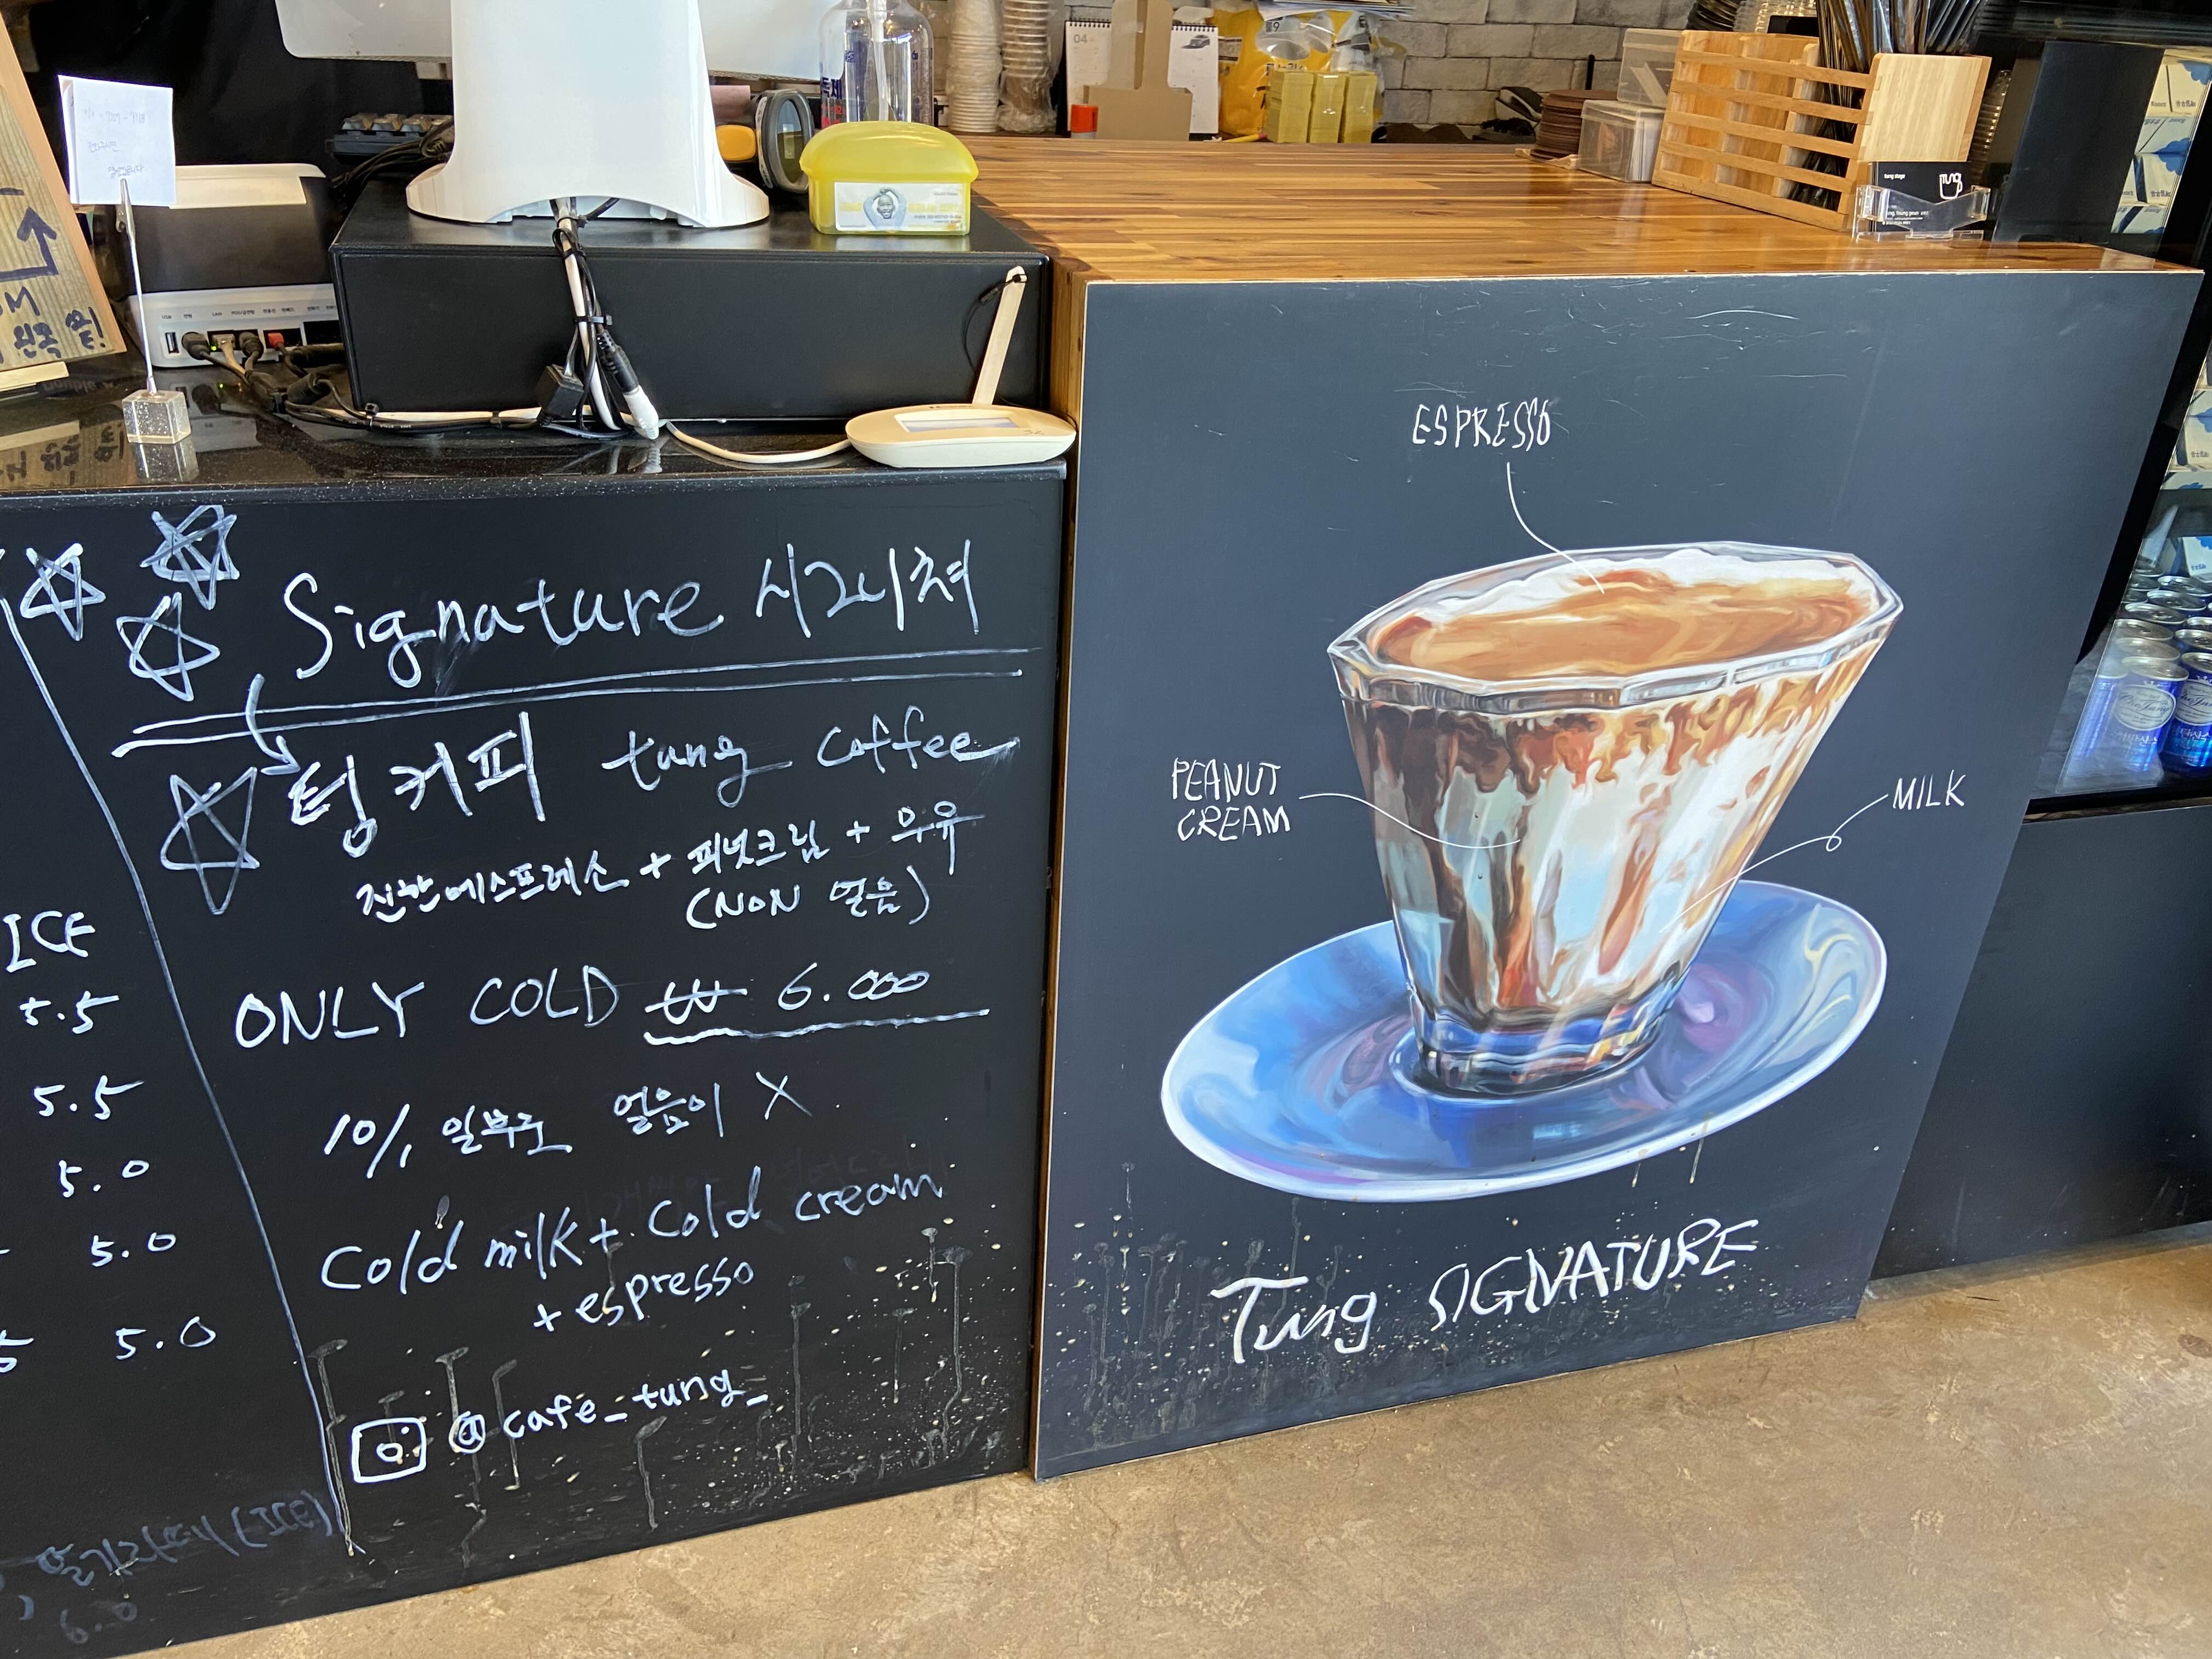 Signature 시그니쳐
텅 커피 tung coffee
진한에스프레소 + 피넛크림 + 우유
(NON 얼음)
ONLY COLD ₩ 6.000
10% 일부로 얼음이 X
Cold milk + Cold cream
+ espresso
@cafe_tung_
ICE
5.5
5.5
5.0
5.0
5.0
(ICE)
6.0
ESPRESSO
PEANUT
CREAM
MILK
Tung SIGNATURE
04
USB
LAN
tung stage
TUNG